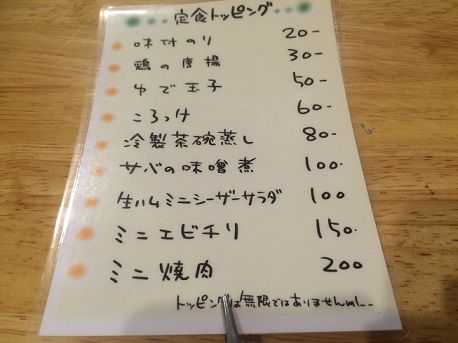 定食トッピング
味付のり 20-
鶏の唐揚 30-
ゆで玉子 50-
ころっけ 60-
冷製茶碗蒸し 80-
サバの味噌煮 100-
生ハムミニシーザーサラダ 100
ミニエビチリ 150-
ミニ焼肉 200
トッピングは無限ではありません